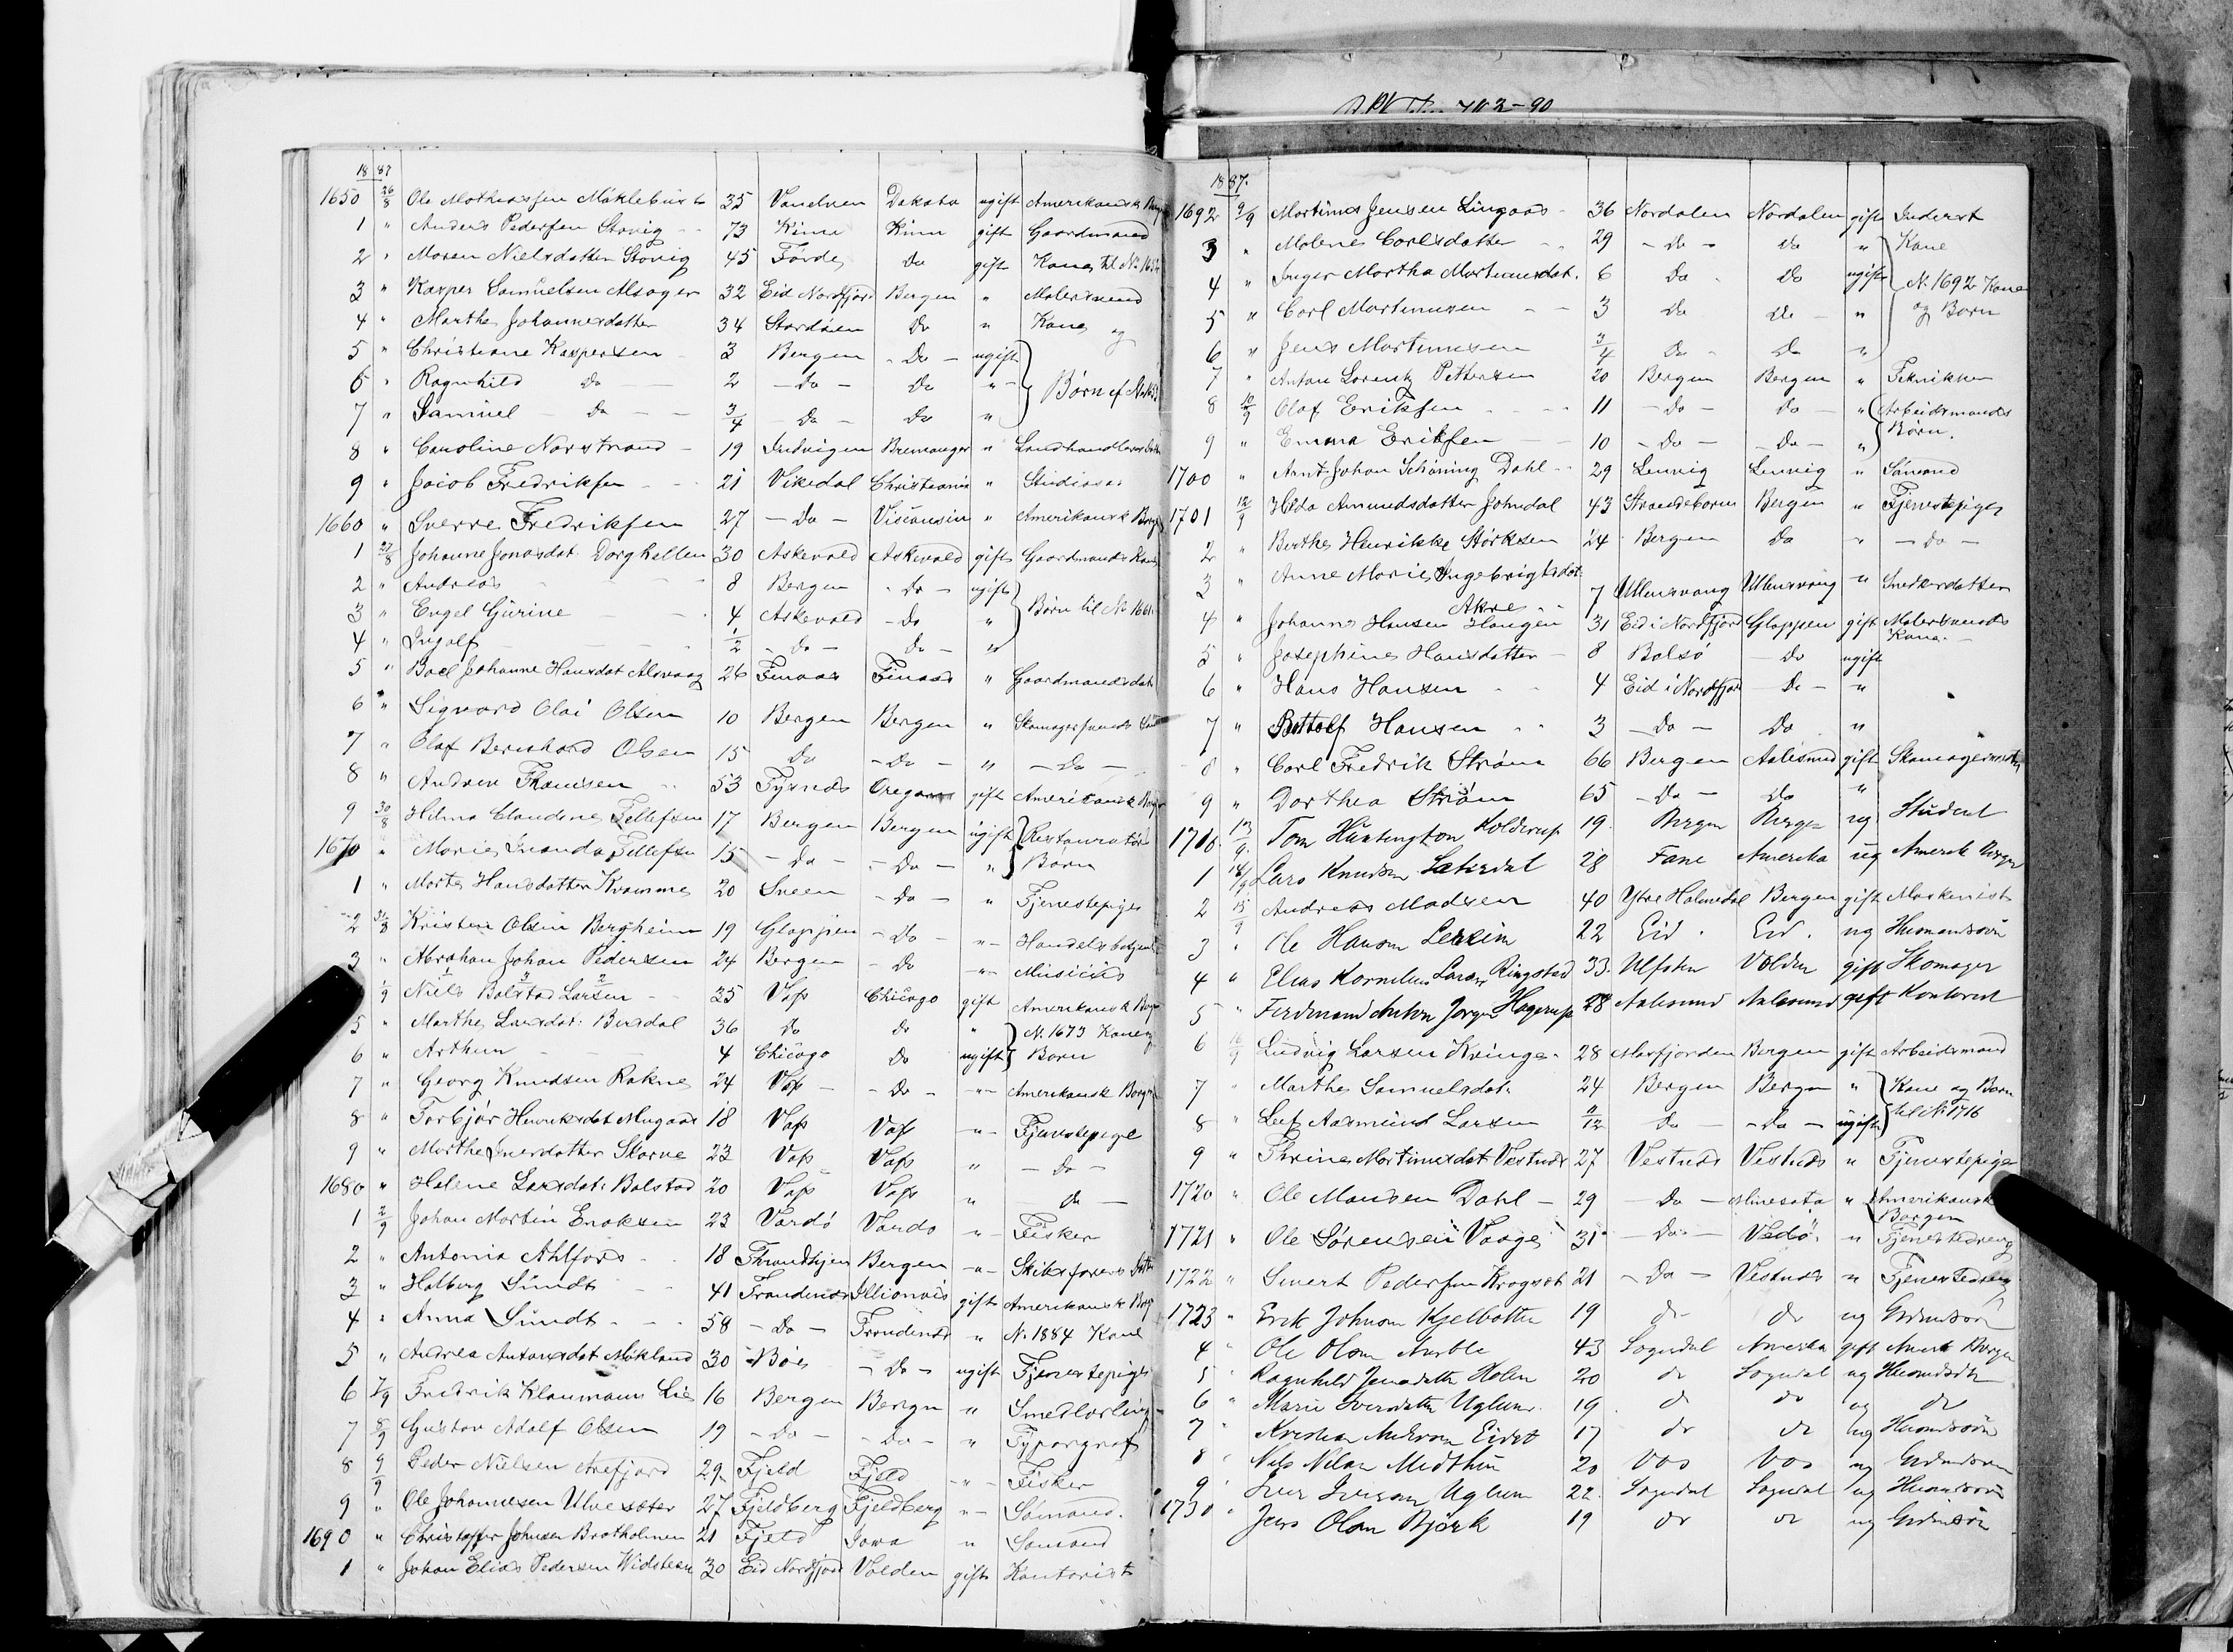 18 87
1650 26/8 Ole Mathiassen Mökleburst 35 Vandven Dakota ugift Amerikansk
1 " Anders Pedersen Stovig 73 Kinn Kinn gift Gaardmand
2 " Maren Nielsdatter Stovig 45 Förde Do gift Kone til No
3 " Kasper Samuelsen Alsager 32 Eid Nordfjord Bergen " Malersvend
4 " Marthe Johannesdatter 34 Stordöen Do " Kone og
5 " Christiane Kaspersen 3 Bergen - Do - ugift
6 " Ragnhild Do 2 - Do - Do " Børn af
7 " Samuel - Do - 3/4 - Do - Do "
8 " Caroline Navstrand 19 Indvigen Bremanger "
9 " Jacob Fredriksen 21 Vikedal Christiania " Studiosus
1660 " Sverre Fredriksen 27 - Do - Visconsin " Amerikansk Borger
1 27/8 Johanne Jonasdat. Dorghellen 30 Askevold Askevold gift Gaardmands Kone
2 " Andreas 8 Bergen - Do - ugift
3 " Engel Gurine 4 Askevold - Do " Børn til No 1661
4 " Ingolf 1/2 - Do - Do - "
5 " Boel Johanne Hansdat Alsvaag 26 Finaas Finaas " Gaardmandsdat
6 " Sigvard Olai Olsen 10 Bergen Bergen " Skomagersvends
7 " Olaf Bernhard Olsen 15 Do - Do - " - Do -
8 " Andrew Thomsen 53 Tysnæs Oregon gift Amerikansk Borger
9 30/8 Hilma Claudine Tellefsen 17 Bergen Bergen ugift Restauratörs
1670 " Marie Inanda Tellefsen 15 - Do - - Do - " Børn
1 " Marta Hansdatter Kramme 20 Sveen - Do - " Tjenestepige
2 31/8 Kristen Olsen Bergheim 19 Gloppen - Do - " Handelsbetjent
3 " Abraham Johan Pedersen 24 Bergen - Do " Musicus
1/9 Niels Bolstad Larsen 35 Vos Chicago gift Amerikansk Borger
5 " Marthe Larsdat. 36 Do do " No. 1673 Kone og
6 " Arthur 4 Chicago Do ugift Børn
7 " Georg Knudsen Rokne 24 Vos - - Do - " Amerikansk Borger
8 " Torbjör Henriksdat Mugaas 18 Vos Vos " Tjenestepige
9 " Marthe Iversdatter Skorve 23 Vos Vos " - Do -
1680 " Helene Larsdat. Bolstad 20 Vos Vos " - do -
1 2/9 Johan Martin Enoksen 23 Vardö Vardö " Fisker
2 " Antonia Ahlfors 18 Thrandhjem Bergen "
3 " Holberg Sundt 41 Trondenæs Illionois gift Amerikansk Borg
4 " Anna Sundt 58 - Do - Trondenæs " No. 1884 Kone
5 " Andrea Antonsdat Mökland 30 Böe - Do - ugift Tjenestepige
6 7/9 Fredrik Klaumann Lie 16 Bergen Bergen " Smedlærling
7 8/9 Gustav Adolf Olsen 19 - Do - - Do - " Typograf
8 9/9 Peder Nielsen Arefjord 29 Fjeld Fjeld " Fisker
9 " Ole Johannesen Ulvesæter 27 Fjeldberg Fjeldberg " Sömand.
1690 " Christoffer Johnsen Bratholmen 21 Fjeld Iowa " Sömand
1 " Johan Elias Pedersen Widsteen 30 Eid Nordfjord Volden gift Kontorist
18 87.
1692 9/9 Martinus Jensen Lingaas 36 Nordalen Nordalen gift Inderst
3 " Malene Carlsdatter 29 - do - do " Kone
4 " Inger Martha Martinusdat. 6 Do Do ugift No. 1692 Kone
5 " Carl Martinussen 3 Do Do " og Børn
6 " Jens Martinusen 3/4 Do Do "
7 " Anton Lorentz Pettersen 20 Bergen Bergen " Tekniker
8 10/9 Olaf Eriksen 11 - Do - Do " Arbeidsmands
9 " Emma Eriksen 10 - Do - - Do - " Børn.
1700 " Arnt Johan Schöning Dahl 29 Lenvig Lenvig " Sömand
1701 12/9 Hilda Amundsdatter Johndal 43 Strandebarm Bergen " Tjenestepige
2 " Berthe Henrikke Störksen 24 Bergen Do " - Do -
3 " Anne Marie Ingebrigtsdat. Akre 7 Ullensvang Ullensvang " Snedkerdatter
4 " Johanne Hansen Haugen 31 Eid i Nordfjord Gloppen gift Malersvends Kone
5 " Josephine Hansdatter 8 Bolsö - do ugift
6 " Hans Hansen 4 Eid i Nordfjord - Do - "
7 " Bottolf Hansen 3 - Do - Do "
8 " Carl Fredrik Ström 66 Bergen Aalesund gift Skomagermester
9 " Dorthea Ström 65 - Do - Do "
1710 13/9 Tom Huntington Kolderup 19. Bergen Bergen ug Student
1 14/9 Lars Knudsen Sæterdal 28 Fane Amerika ug Amerik Borger
2 15/9 Andreas Madsen 40 Ytre Holmedal Bergen gift Maskinist
3 " Ole Hanson 22 Eid Eid ug Husmandssön
4 " Elias Kornelius Larsen Ringstad 33. Ulfsten Volden gift Skomager
5 " Ferdinand Anton Jorgen Hagerup 28 Aalesund Aalesund gift Kontorist
6 16/9 Ludvig Larsen Kvinge 28 Masfjorden Bergen gift Arbeidsmand
7 " Marthe Samuelsdat. 24 Bergen Bergen " Kone og Barn
8 " Leif Aasmund Larsen 11/12 Do - Do - ugift til No 1716
9 " Thrine Martinusdat Vestnæs 27 Vestnæs Vestnæs " Tjenestepige
1720 " Ole Monsen Dahl - 29 - Do - Minesota " Amerikansk Borger
1721 " Ole Sörensen Vaage 31 - Do - Vedö " Tjenestedreng
1722 " Sivert Pedersen Krogset 21 - Do - Vestnæs " Tjenestedreng
1723 " Erik Johnson Kjelbotten 19 do do ug Grdmdssön
4 " Ole Olson 43 Sogndal Amerika gift Amerk Borger
5 " Ragnhild Jensdatter Holen 20 do Sogndal ug
6 " Marie Iversdatter Uglum 19 do do ug do
7 " Kristian Eidet 17 do do ug Husmdssön
8 " Nils Nilson Midthun 20 Vos Vos ug Grdmdssön
9 " Iver Iverson Uglum 22. Sogndal Sogndal ug Husmdssön
1730 " Jens Olson Björk 19 do do ug Grdmdssön